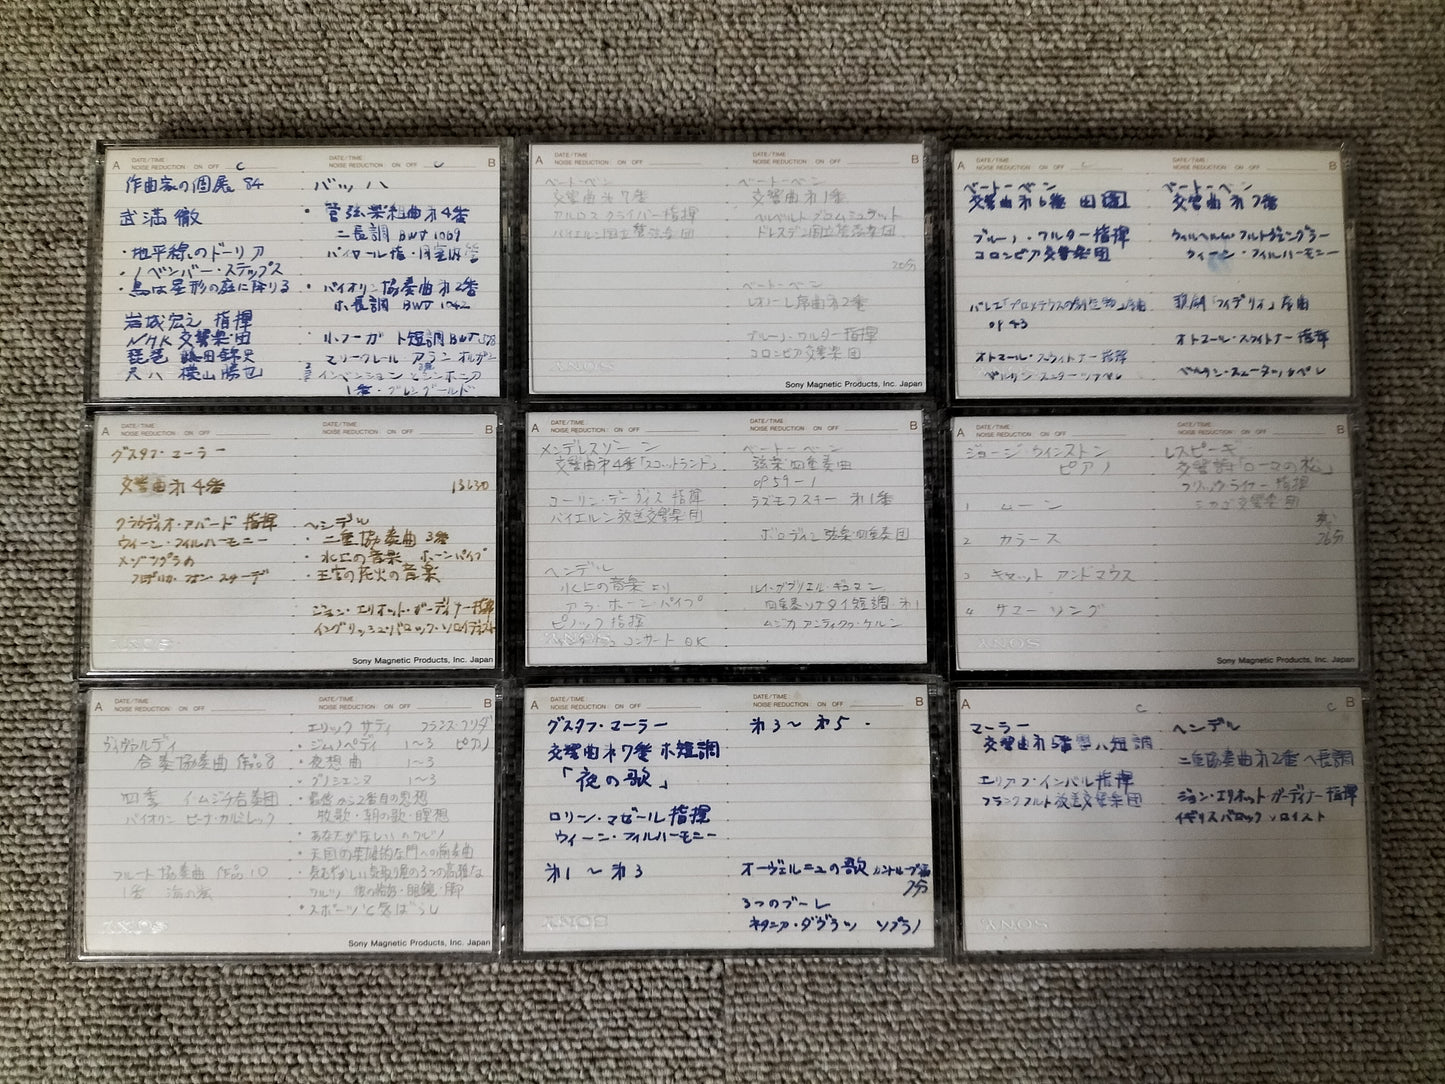 A DATE/TIME NOISE REDUCTION ON OFF C
作曲家の個展 84
武満 徹
・地平線のドーリア
・ノベンバー・ステップス
・鳥は星形の庭に降りる
岩城宏之 指揮
NHK 交響楽団
琵琶 鶴田錦史
尺八 横山勝也
DATE/TIME NOISE REDUCTION ON OFF B
バッハ
・管弦楽組曲オ4番
ニ長調 BWV 1069
・バイオリン協奏曲オ2番
ホ長調 BWV 1042
・小フーガ ト短調 BWV 578
マリークレール アラン オルガン
インベンションとシンホニア
1番・グレングールド
A DATE/TIME NOISE REDUCTION ON OFF
ベートーベン
交響曲オ7番
カルロス クライバー指揮
バイエルン国立管弦楽団
SONY
DATE/TIME NOISE REDUCTION ON OFF B
ベートーベン
交響曲オ1番
ヘルベルト ブロムシュテット
ドレスデン国立管弦楽団
ベートーベン
レオノーレ序曲オ2番
ブルーノ・ワルター指揮
コロンビア交響楽団
Sony Magnetic Products, Inc. Japan
A DATE/TIME NOISE REDUCTION ON OFF
ベートーベン
交響曲オ6番 田園
ブルーノ・ワルター指揮
コロンビア交響楽団
バレエ「プロメテウスの創造物」序曲
OP 43
オトマール・スウィトナー指揮
ベルリン・スターツカペレ
DATE/TIME NOISE REDUCTION ON OFF B
ベートーベン
交響曲オ7番
ウィルヘルム・フルトヴェングラー
ウィーン・フィルハーモニー
歌劇「フィデリオ」序曲
オトマール・スウィトナー指揮
ベルリン・スターツカペレ
A DATE/TIME NOISE REDUCTION ON OFF
グスタフ・マーラー
交響曲オ4番
クラウディオ・アバード 指揮
ウィーン・フィルハーモニー
メゾソプラノ
フレデリカ・フォン・スターデ
SONY
DATE/TIME NOISE REDUCTION ON OFF B
ヘンデル
・二重協奏曲 3番
・水上の音楽 ホーンパイプ
・王宮の花火の音楽
ジョン・エリオット・ガーディナー指揮
イングリッシュバロック・ソロイスト
Sony Magnetic Products, Inc. Japan
A DATE/TIME NOISE REDUCTION ON OFF
メンデルスゾーン
交響曲オ4番「スコットランド」
コーリン・デーヴィス 指揮
バイエルン放送交響楽団
ヘンデル
水上の音楽より
アラ・ホーンパイプ
ピノック 指揮
イングリッシュ コンサート OK
SONY
DATE/TIME NOISE REDUCTION ON OFF B
ベートーベン
弦楽四重奏曲
OP 59-1
ラズモフスキー オ1番
ボロディン弦楽四重奏団
ルイ・ガブリエル・ギユマン
四重奏ソナタイ短調 オ1
ムジカ アンティクヮ・ケルン
A DATE/TIME NOISE REDUCTION ON OFF
ジョージ ウィンストン
ピアノ
1 ムーン
2 カラーズ
3 キャット アンドマウス
4 サマー ソング
DATE/TIME NOISE REDUCTION ON OFF B
レスピーギ
交響詩「ローマの松」
フリッツ・ライナー 指揮
シカゴ交響楽団
Sony Magnetic Products, Inc. Japan
A DATE/TIME NOISE REDUCTION ON OFF
ヴィヴァルディ
合奏協奏曲 作品8
四季 イムジチ合奏団
バイオリン ピーナ・カルミレッリ
フルート協奏曲 作品10
1番 海の嵐
SONY
DATE/TIME NOISE REDUCTION ON OFF B
エリック サティ フランス・クリダ
・ジムノペディ 1〜3 ピアノ
・夜想曲 1〜3
・グノシエンヌ 1〜3
・最後から2番目の思想
牧歌・朝の歌・瞑想
・あなたがほしい のワルツ
・天国の英雄的な門への前奏曲
・スポーツと気ばらし
Sony Magnetic Products, Inc. Japan
A DATE/TIME NOISE REDUCTION ON OFF
グスタフ・マーラー
交響曲オ7番 ホ短調
「夜の歌」
ロリン・マゼール 指揮
ウィーン・フィルハーモニー
オ1 〜 オ3
SONY
DATE/TIME NOISE REDUCTION ON OFF B
オ3〜オ5
オーヴェルニュの歌
3つのブーレ
ソプラノ
A DATE/TIME NOISE REDUCTION ON OFF C
マーラー
交響曲オ5番 嬰ハ短調
エリアフ・インバル指揮
フランクフルト放送交響楽団
SONY
DATE/TIME NOISE REDUCTION ON OFF C B
ヘンデル
二重協奏曲オ2番 ヘ長調
ジョン・エリオット ガーディナー指揮
イギリスバロック ソロイスト